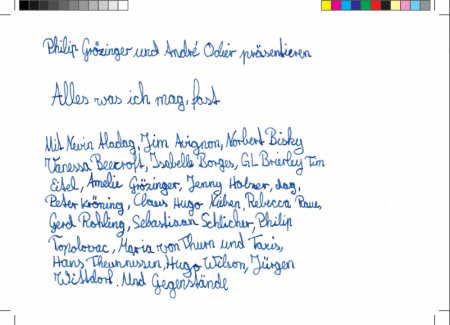 Philip Grözinger und André Odier präsentieren
Alles was ich mag, fast
Mit Nevin Aladag, Jim Avignon, Norbert Bisky
Vanessa Beecroft, Isabelle Borges, GL Brierley Tim
Eitel, Amelie Grözinger, Jenny Holzer, dag,
Peter Kröning, Claus Hugo Nielsen, Rebecca Raue,
Gerd Rohling, Sebastiaan Schlicher, Philip
Topolovac, Maria von Thurn und Taxis,
Hans Theunnissen, Hugo Wilson, Jürgen
Wittdorf, Und Gegenstände